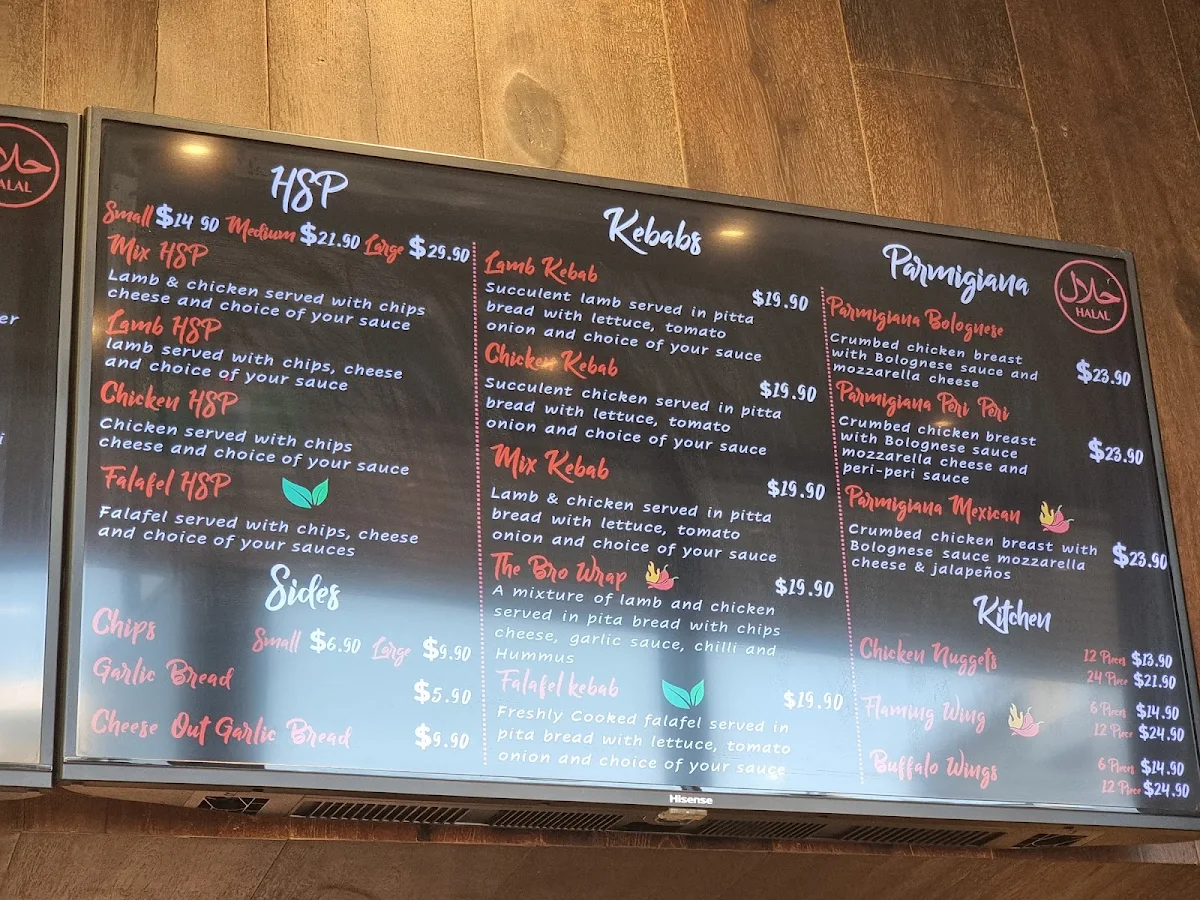 HSP
Small $14 90 Medium $21.90 Large $29.90
Mix HSP
Lamb & chicken served with chips
cheese and choice of your sauce
Lamb HSP
lamb served with chips, cheese
and choice of your sauce
Chicken HSP
Chicken served with chips
cheese and choice of your sauce
Falafel HSP
Falafel served with chips, cheese
and choice of your sauces
Sides
Chips
Small $6.90 Large $9.90
Garlic Bread
$5.90
Cheese Out Garlic Bread
$9.90
Kebabs
Lamb Kebab
$19.90
Succulent lamb served in pitta
bread with lettuce, tomato
onion and choice of your sauce
Chicken Kebab
$19.90
Succulent chicken served in pitta
bread with lettuce, tomato
onion and choice of your sauce
Mix Kebab
$19.90
Lamb & chicken served in pitta
bread with lettuce, tomato
onion and choice of your sauce
The Bro Wrap
$19.90
A mixture of lamb and chicken
served in pita bread with chips
cheese, garlic sauce, chilli and
Hummus
Falafel kebab
$19.90
Freshly Cooked falafel served in
pita bread with lettuce, tomato
onion and choice of your sauce
Parmigiana
حلال
HALAL
Parmigiana Bolognese
Crumbed chicken breast
with Bolognese sauce and
mozzarella cheese
$23.90
Parmigiana Peri Peri
Crumbed chicken breast
with Bolognese sauce
mozzarella cheese and
peri-peri sauce
$23.90
Parmigiana Mexican
Crumbed chicken breast with
Bolognese sauce mozzarella
cheese & jalapeños
$23.90
Kitchen
Chicken Nuggets
12 Pieces $13.90
24 Piece $21.90
Flaming Wing
6 Pieces $14.90
12 Piece $24.90
Buffalo Wings
6 Pieces $14.90
12 Piece $24.90
Hisense